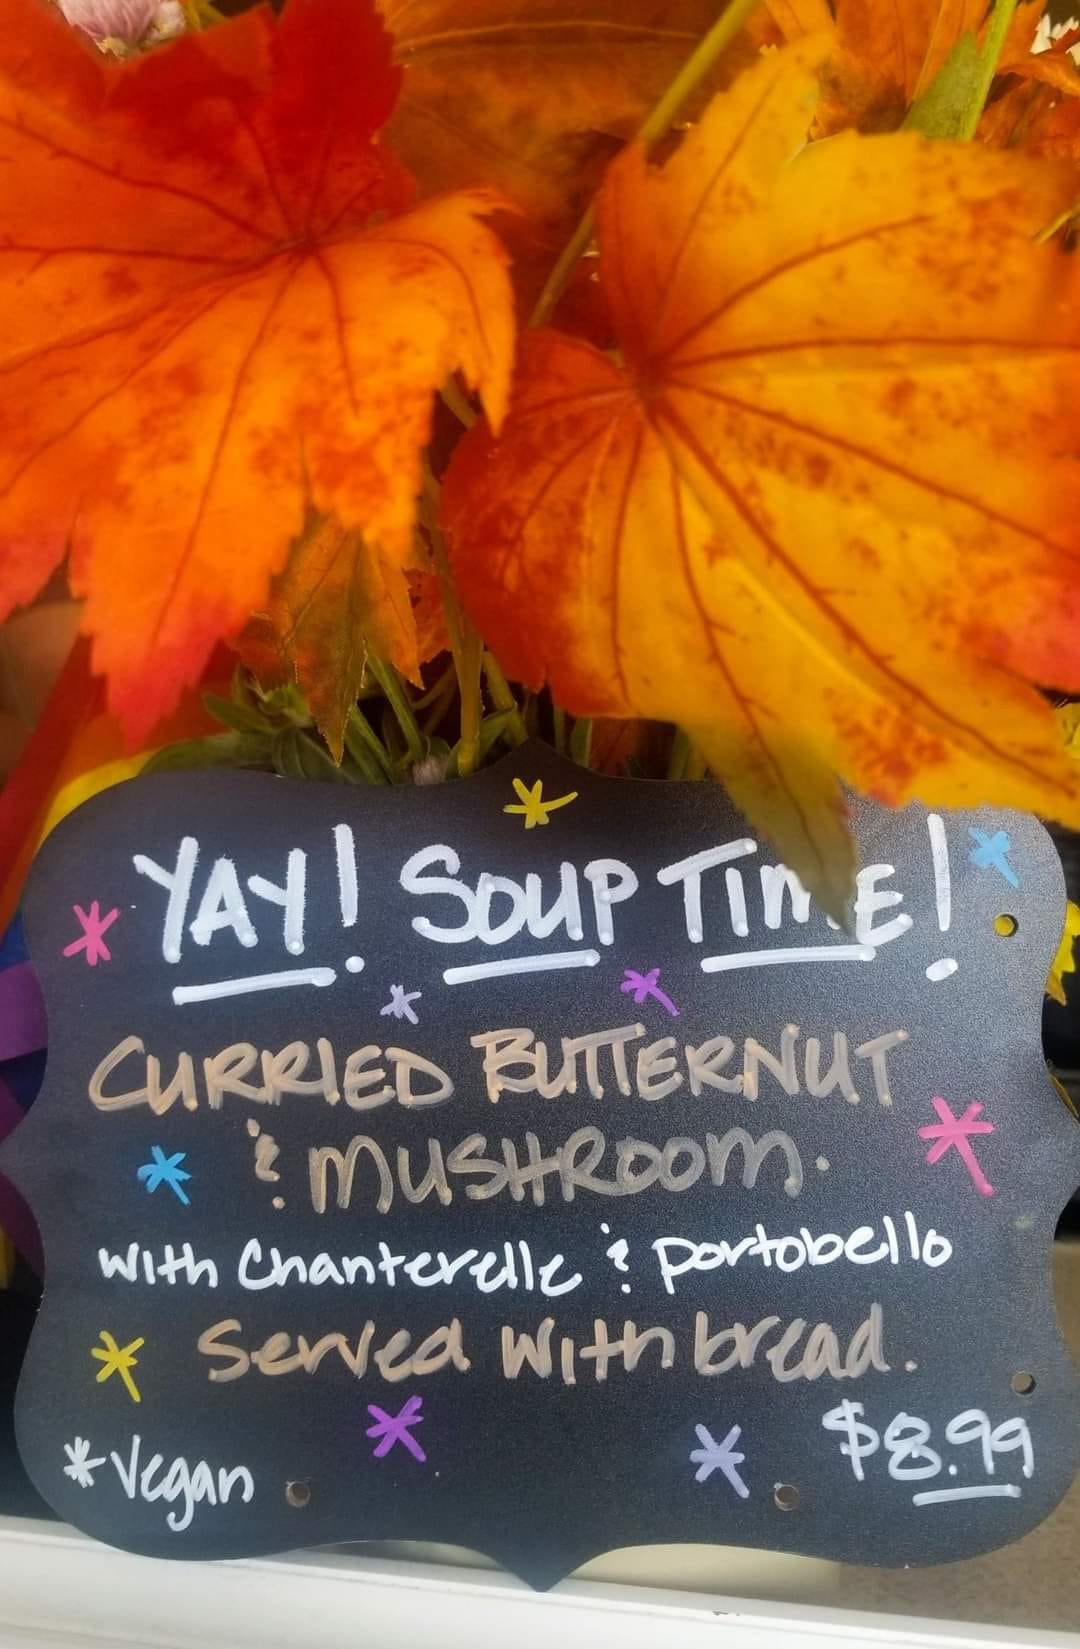 YAY! SOUP TIME!
CURRIED BUTTERNUT
& MUSHROOM.
with Chanterelle & portobello
Served with bread.
$8.99
*Vegan